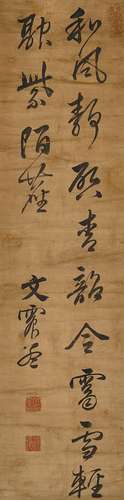 和風靜啟青韶令霽雪輕
融紫陌塵
文震孟